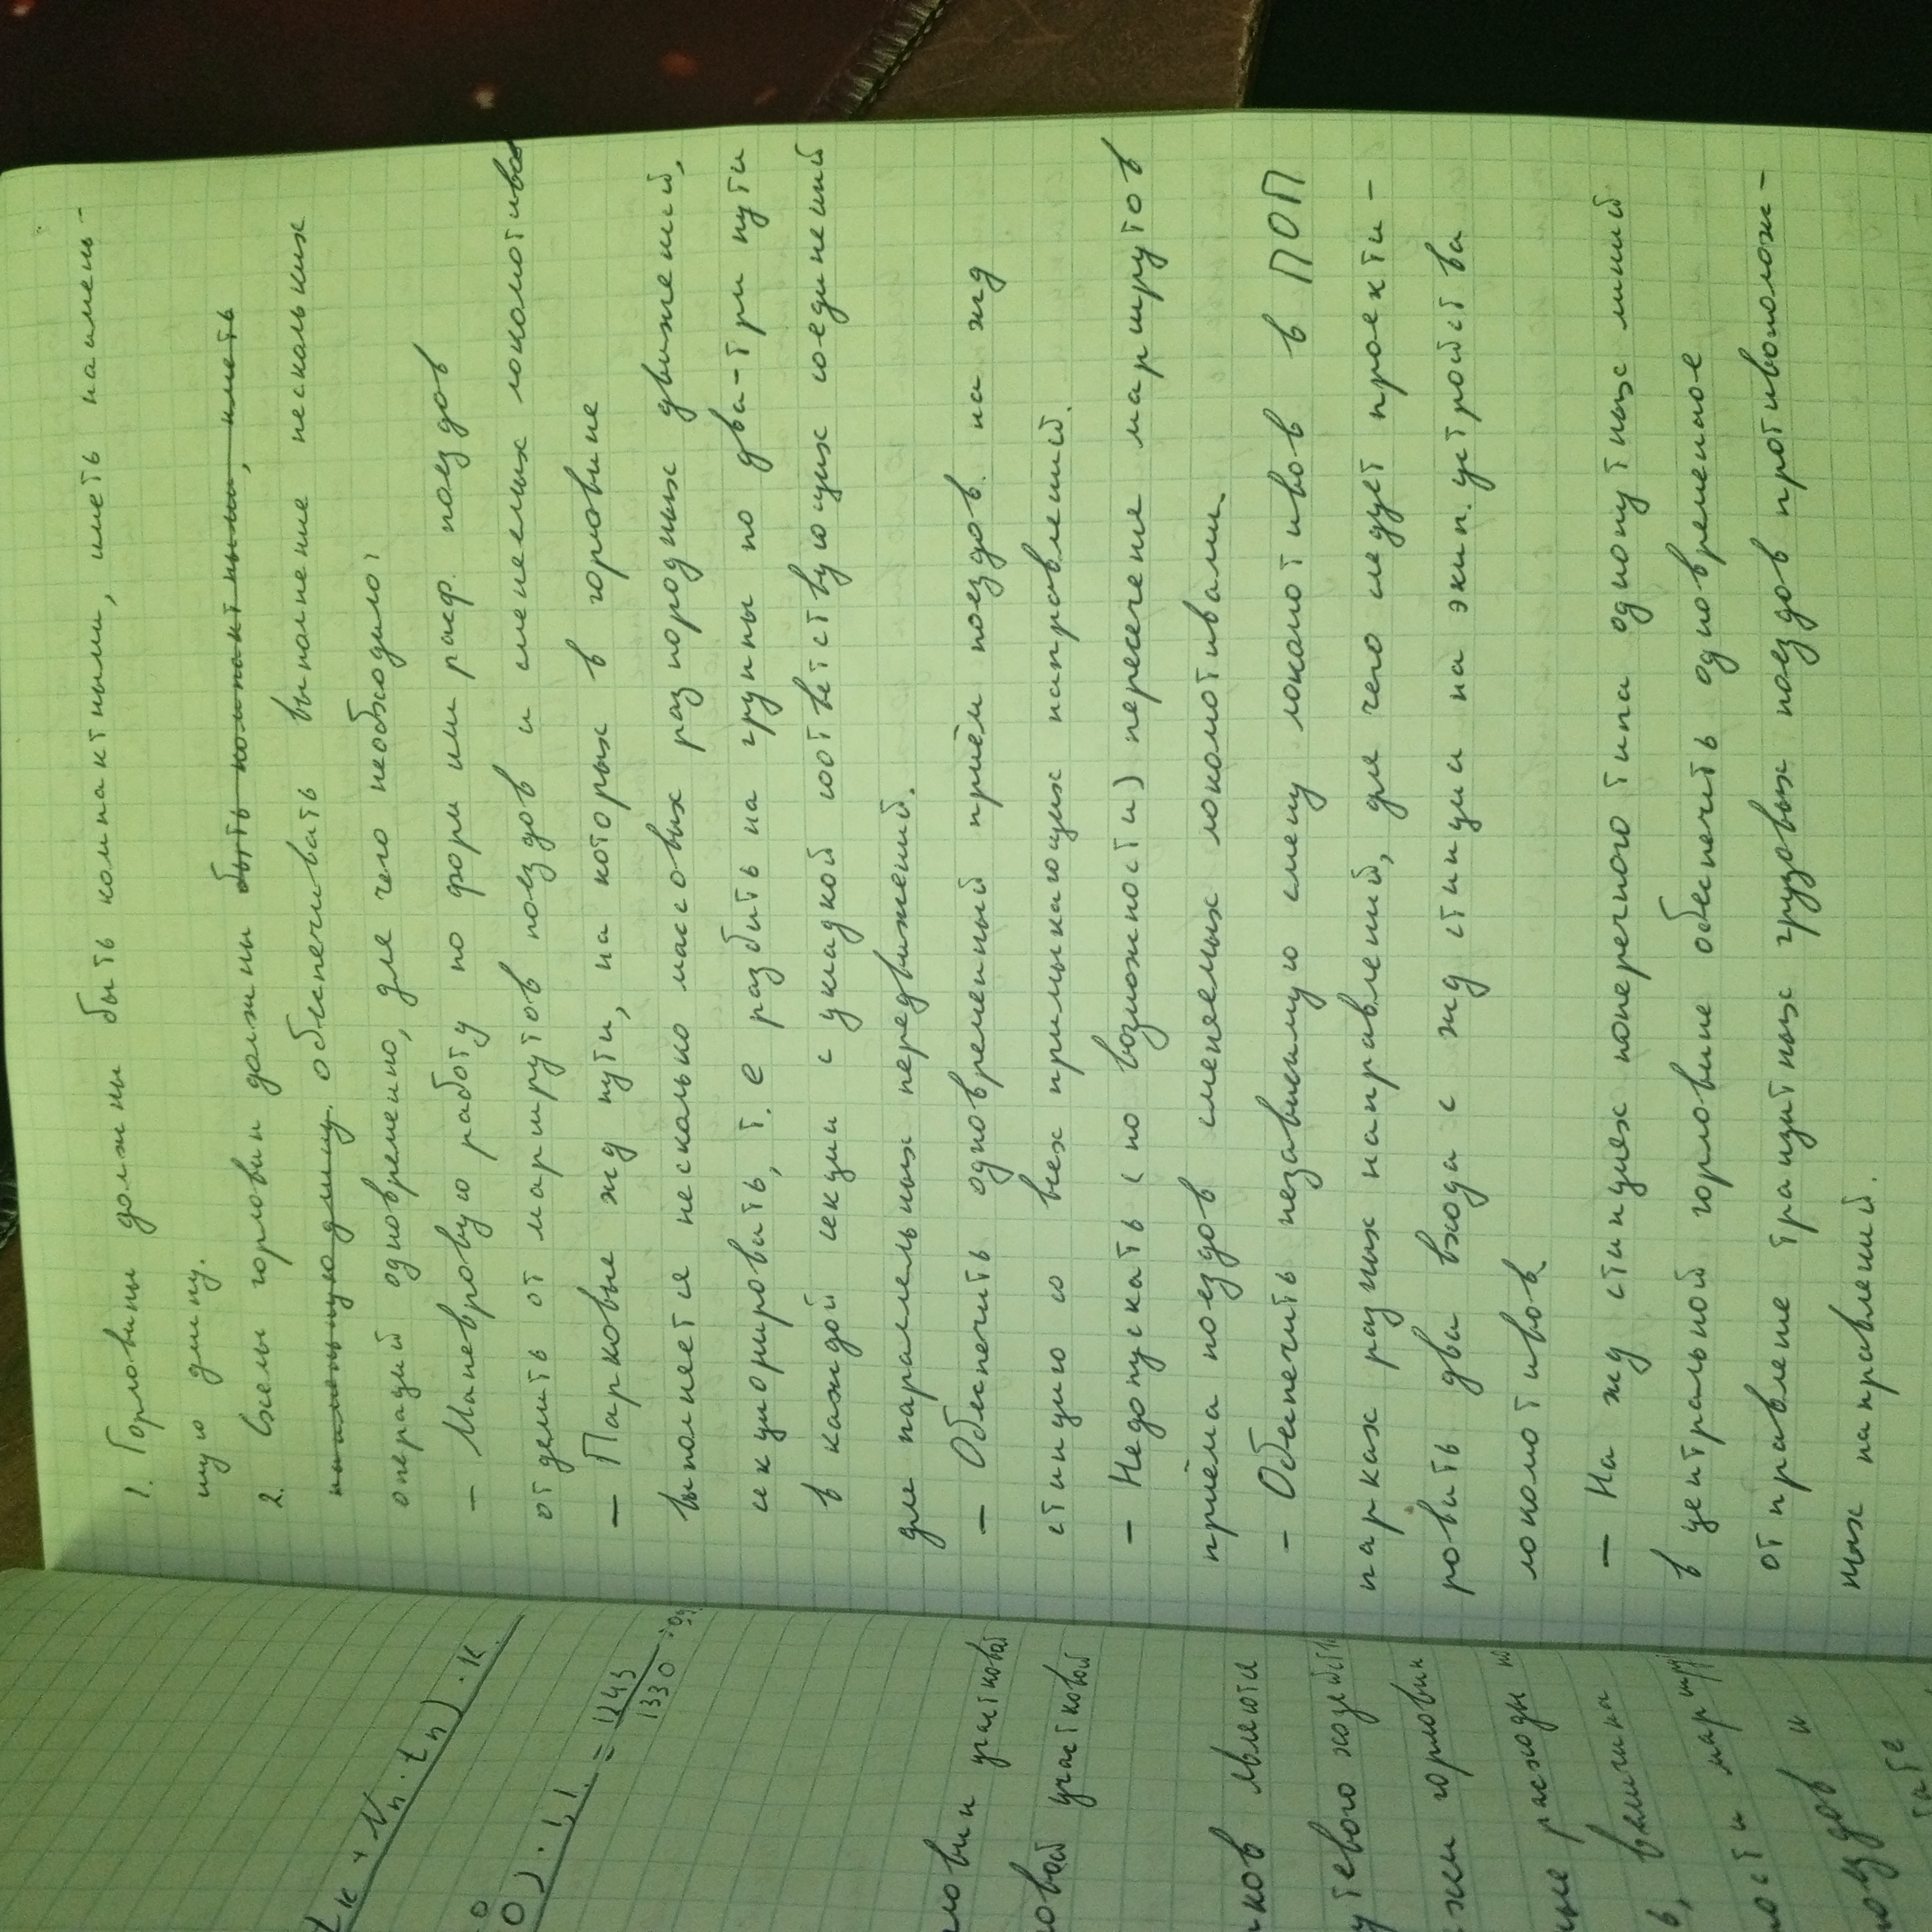 1. Горловины должны быть компактными, иметь наимень-
шую длину.
2. Схемы горловин должны быть компактными, иметь
наименьшую длину. обеспечивать выполнение нескольких
операций одновременно, для чего необходимо:
- Маневровую работу по форм или расф. поездов
отделить от маршрутов поездов и сменемых локомотивов
- Парковые жд пути, на которых в горловине
выполнется несколько массовых разнородных движений,
секционировать, т.е разбить на группы по два-три пути
в каждой секции с укладкой соответствующих соединений
для паралельных передвижений.
- Обеспечить одновременный приём поездов на жд
станцию со всех примыкающих направлений.
- Недопускать (по возможности) пересечение маршрутов
приёма поездов сменяемых локомотивами.
- Обеспечить независимую смену локомотивов в ПОП
парках разных направлений, для чего следует проекти-
ровать два входа с жд станции на экип. устройства
локомотивов
- На жд станциях поперечного типа однопутных линий
в центральной горловине обеспечить одновременое
отправление транзитных грузовых поездов противополож-
ных направлений.
tк + Nп · tп) · к
0) · 1,1 = 1243
1330
ловин участковой
овой участковой
ков являются
утевого
горловин
расходы
величина
ости